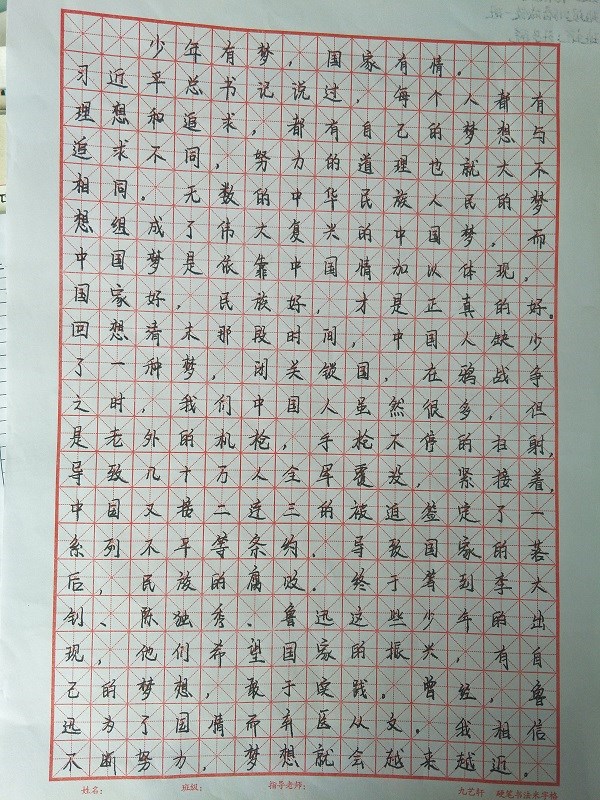 少年有梦，国家有情。
习近平总书记说过，每个人都有
理想和追求，都有自己的梦想与
追求不同，努力的道理也就大不
相同。无数的中华民族人民的梦
想组成了伟大复兴的中国梦，而
中国梦是依靠中国情加以体现。
国家好，民族好，才是正真的好。
回想清末那段时间，中国人缺少
了一种梦，闭关锁国，在鸦战争
之时，我们中国人虽然很多，但
是老外的机枪，手枪不停的扫射，
导致几十万人全军覆没，紧接着，
中国又接二连三的被迫签定了一
系列不平等条约．导致国家的落
后，民族的腐败．终于等到李大
钊、陈独秀、鲁迅这些少年的出
现，他们希望国家的振兴，有自
己的梦想，敢于实践。曾经，鲁
迅为了国情而弃医从文。我相信
不断努力，梦想就会越来越近。
姓名： 班级： 指导老师： 九艺轩 硬笔书法米字格